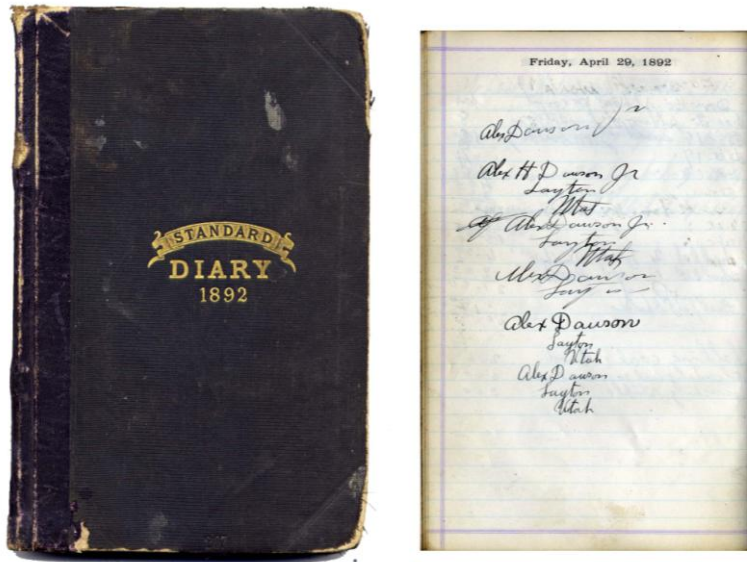 STANDARD
DIARY
1892
Friday, April 29, 1892
Alex Dawson Jr
Alex H Dawson Jr
Layton
Utah
Alex Dawson Jr.
Layton
Utah
Alex Dawson
Alex Dawson
Layton
Utah
Alex Dawson
Layton
Utah